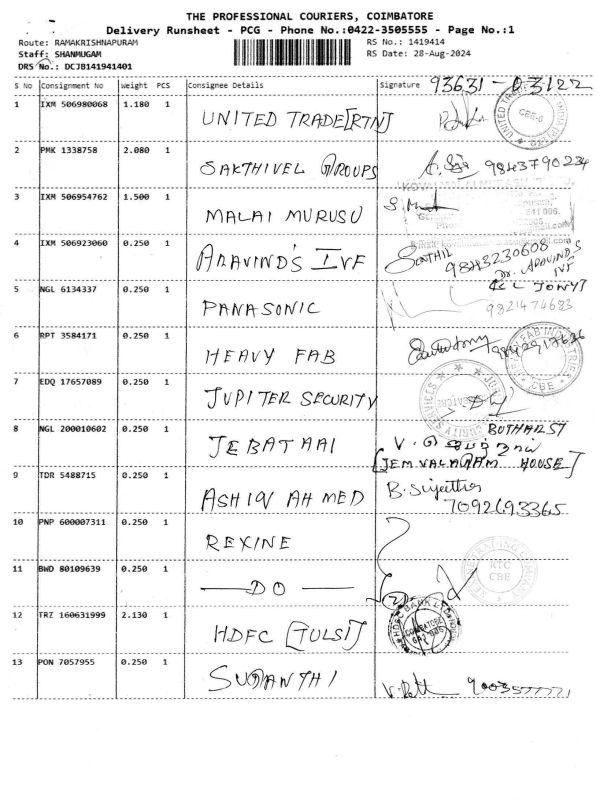 THE PROFESSIONAL COURIERS, COIMBATORE
Delivery Runsheet - PCG - Phone No.:0422-3505555 - Page No.:1
Route: RAMAKRISHNAPURAM
RS No.: 1419414
Staff: SHANMUGAM
RS Date: 28-Aug-2024
DRS No.: DCJB141941401
S No Consignment No Weight PCS Consignee Details Signature 93631-03122
1 IXM 506980068 1.180 1 UNITED TRADE[RTN]
2 PMK 1338758 2.080 1 SAKTHIVEL GROUPS 9843790234
3 IXM 506954762 1.500 1 MALAI MURUSU
4 IXM 506923060 0.250 1 ARAVIND'S IVF 9843230608
Dr. ARAVIND'S
IVF
5 NGL 6134337 0.250 1 PANASONIC
9821474683
6 RPT 3584171 0.250 1 HEAVY FAB
7 EDQ 17657089 0.250 1 JUPITER SECURITY
8 NGL 200010602 0.250 1 JEBATAAI
HOUSE]
9 TDR 5488715 0.250 1 ASHIQ AHMED
7092693365
10 PNP 600007311 0.250 1 REXINE
11 BWD 80109639 0.250 1 DO
KTC
CBE
12 TRZ 160631999 2.130 1 HDFC [TULSI]
HDFC BANK
COIMBATORE
13 PON 7057955 0.250 1 SUGANTHI